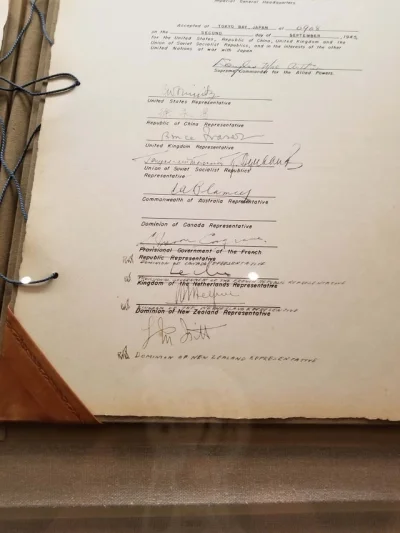 Imperial General Headquarters
Accepted at TOKYO BAY, JAPAN at 0908
on the SECOND day of SEPTEMBER, 1945,
for the United States, Republic of China, United Kingdom and the
Union of Soviet Socialist Republics, and in the interests of the other
United Nations at war with Japan.
Douglas MacArthur
Supreme Commander for the Allied Powers.
CWNimitz
United States Representative
Republic of China Representative
Bruce Fraser
United Kingdom Representative
Union of Soviet Socialist Republics
Representative
TABlamey
Commonwealth of Australia Representative
Dominion of Canada Representative
Provisional Government of the French
Republic Representative
DOMINION OF CANADA REPRESENTATIVE
Leclerc
PROVISIONAL GOVERNMENT OF THE FRENCH REPUBLIC REPRESENTATIVE
Kingdom of the Netherlands Representative
KINGDOM OF THE NETHERLANDS REPRESENTATIVE
Dominion of New Zealand Representative
DOMINION OF NEW ZEALAND REPRESENTATIVE